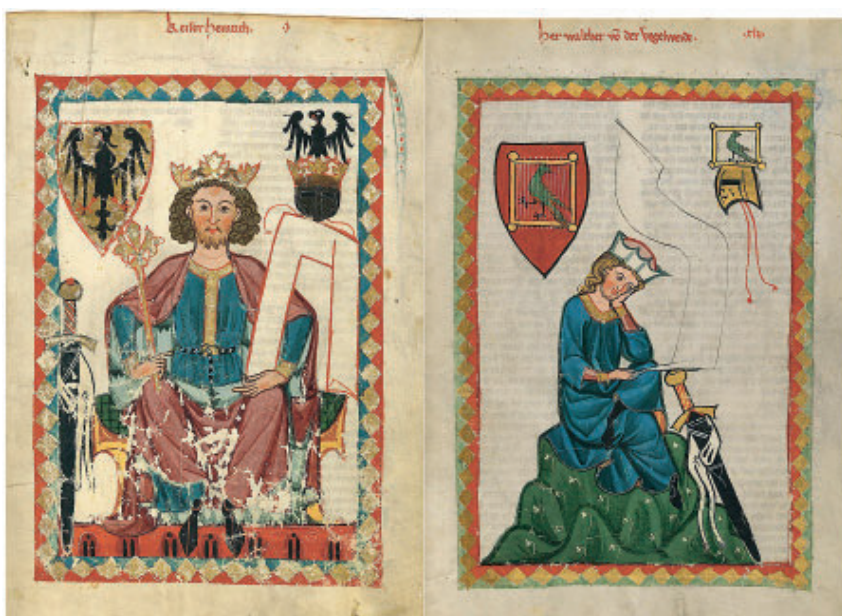 Keiser Heinrich. j
Her walther vō der Vogelweide. .xlv.